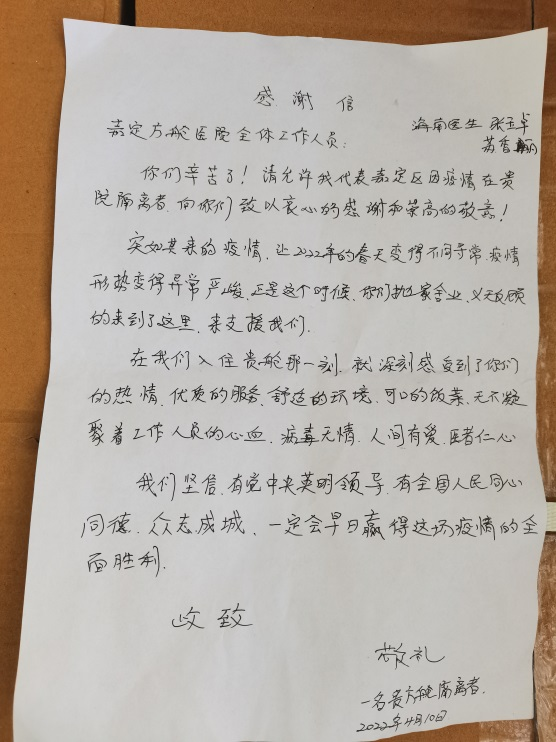 感谢信
海南医生 张玉卓
嘉定方舱医院全体工作人员:
苏香丽
你们辛苦了!请允许我代表嘉定区因疫情在贵
院隔离者,向你们致以衷心的感谢和崇高的敬意!
突如其来的疫情,让2022年的春天变得不同寻常.疫情
形势变得异常严峻,正是这个时候,你们抛家舍业,义无反顾
的来到了这里,来支援我们.
在我们入住贵舱那一刻,就深刻感受到了你们
的热情,优质的服务,舒适的环境,可口的饭菜,无不凝
聚着工作人员的心血,病毒无情,人间有爱,医者仁心
我们坚信,有党中央英明领导,有全国人民同心
同德,众志成城,一定会早日赢得这场疫情的全
面胜利.
此致
敬礼
一名贵方舱隔离者.
2022年4月10日